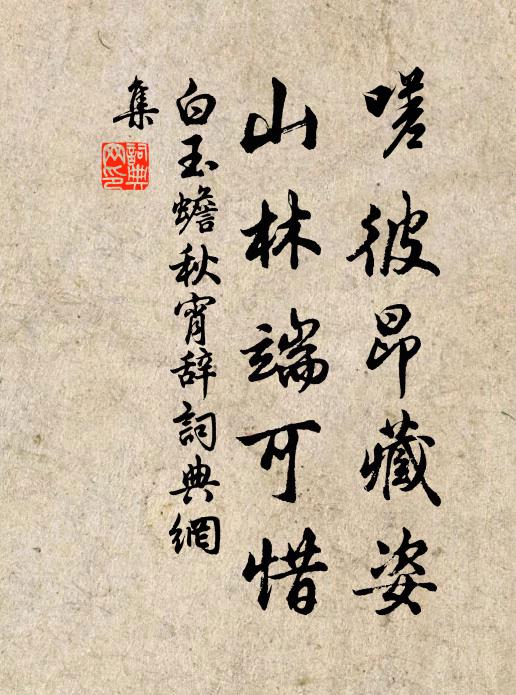 嗟彼昂藏姿
山林端可惜
白玉蟾秋宵辞詞典網
集
詞典
网印